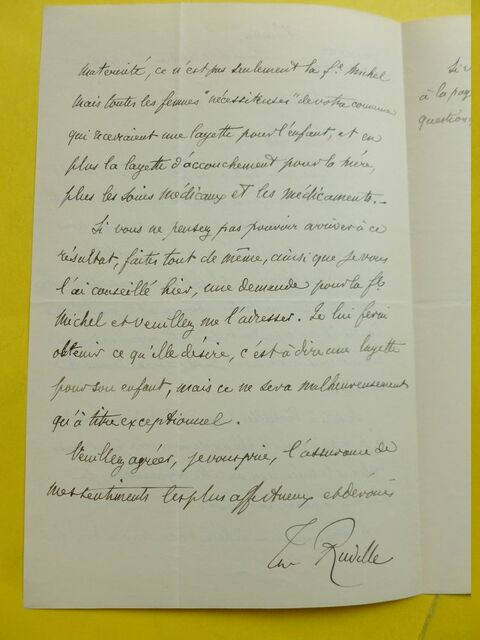 maternité, ce n'est pas seulement la fe Michel
mais toutes les femmes "nécessiteuses" de votre commune
qui recevraient une layette pour l'enfant, et en
plus la layette d'accouchement pour la mère,
plus les soins médicaux et les médicaments._
Si vous ne pensez pas pouvoir arriver à ce
résultat, faites tout de même, ainsi que je vous
l'ai conseillé hier, une demande pour la fe
Michel et veuillez me l'adresser. Je lui ferai
obtenir ce qu'elle désire, c'est à dire une layette
pour son enfant, mais ce ne sera malheureusement
qu'à titre exceptionnel.
Veuillez agréer, je vous prie, l'assurance de
mes sentiments les plus affectueux et dévoués
Ruville
à la
question